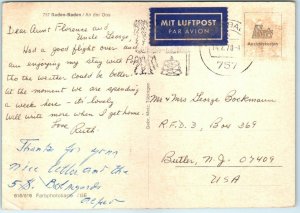 757 Baden-Baden / An der Oos
Dear Aunt Florence and
Uncle George,
Had a good flight over and
am enjoying my stay with Al
tho the weather could be better.
At the moment we are spending
a week here - it's lovely
Will write more when I get home.
Love
Ruth
Thanks for your
nice letter and the
MIT LUFTPOST
PAR AVION
757
Mr & Mrs George Bockmann
R.F.D. 3, Box 369
Butler, N.J. 07409
USA